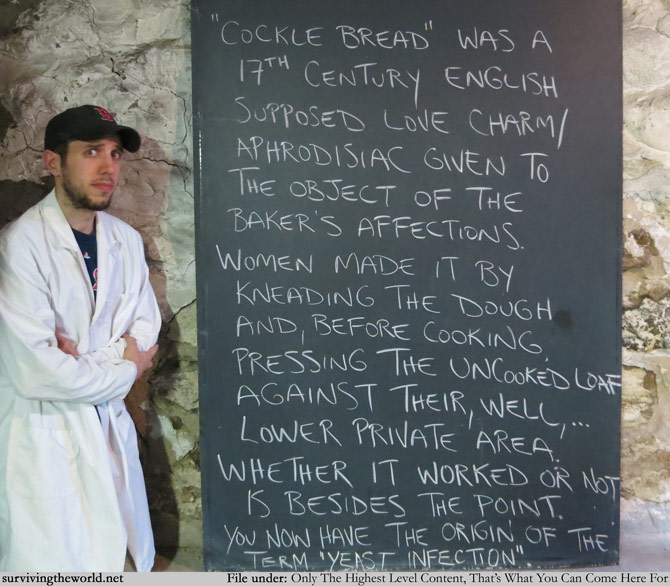 "COCKLE BREAD" WAS A
17TH CENTURY ENGLISH
SUPPOSED LOVE CHARM/
APHRODISIAC GIVEN TO
THE OBJECT OF THE
BAKER'S AFFECTIONS.
WOMEN MADE IT BY
KNEADING THE DOUGH
AND, BEFORE COOKING,
PRESSING THE UNCOOKED LOAF
AGAINST THEIR, WELL,...
LOWER PRIVATE AREA.
WHETHER IT WORKED OR NOT
IS BESIDES THE POINT.
YOU NOW HAVE THE ORIGIN OF THE
TERM "YEAST INFECTION".
survivingtheworld.net File under: Only The Highest Level Content, That's What You Can Come Here For